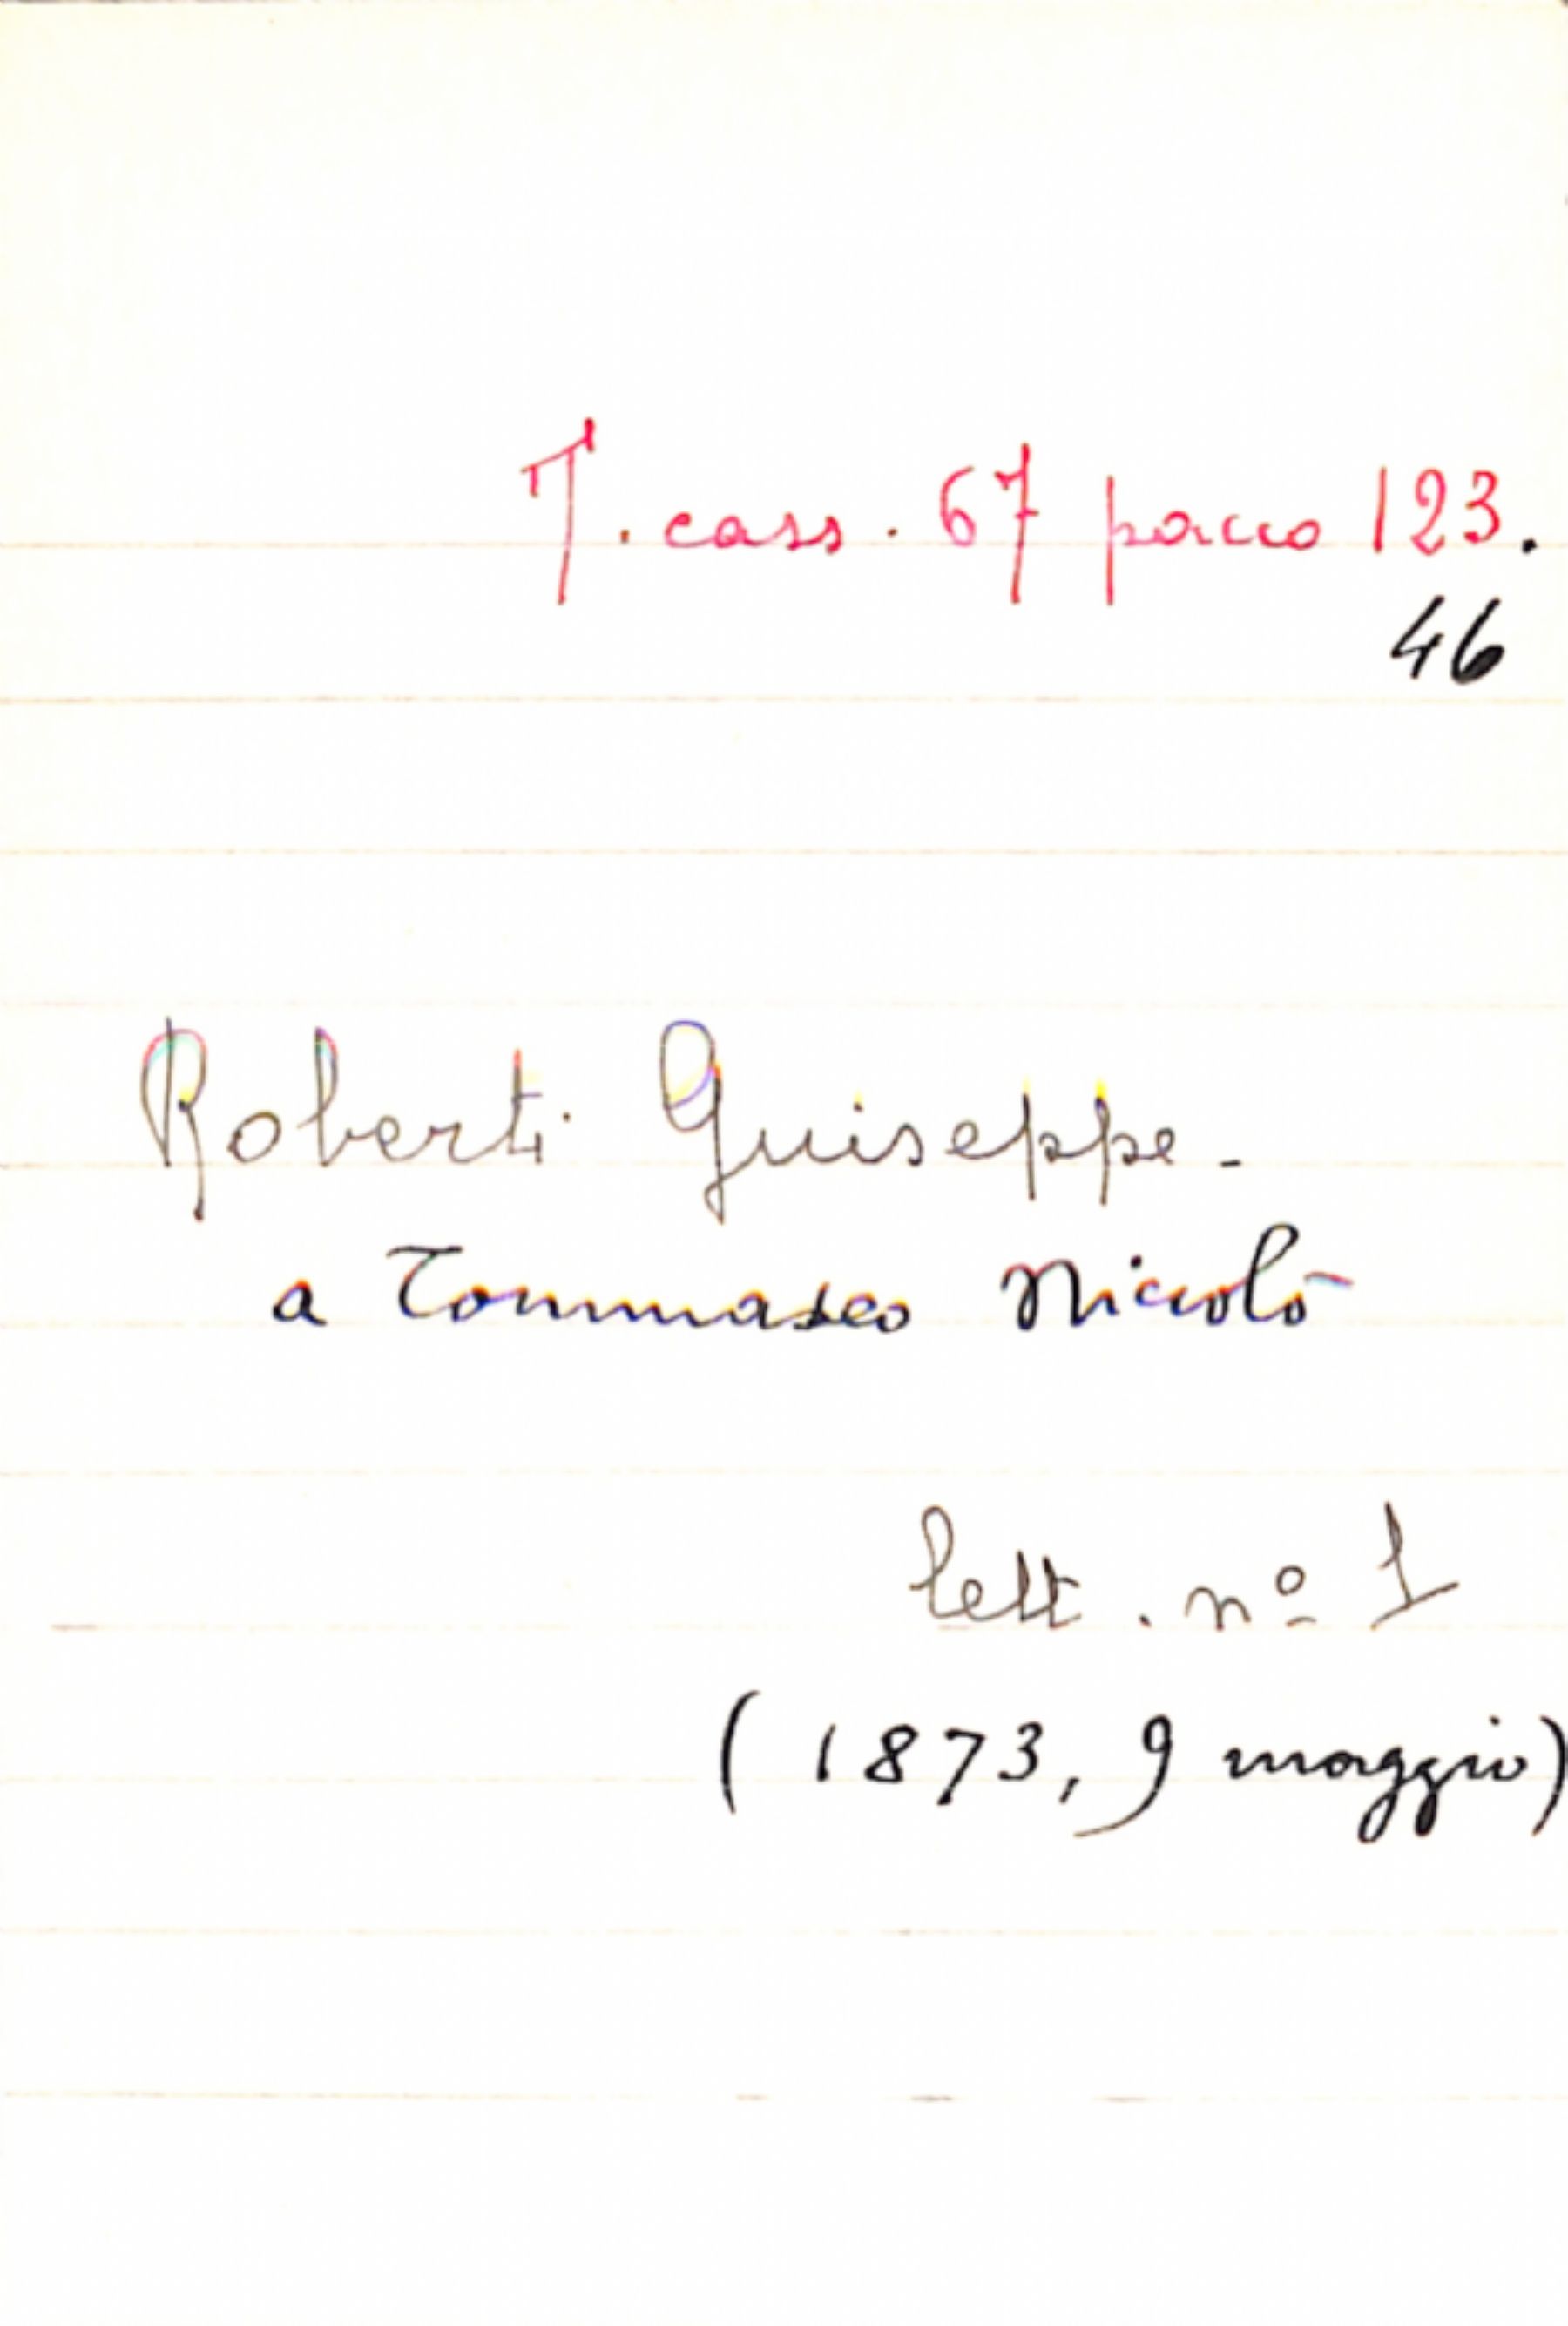 T. cass. 67 pacco 123.
46
Roberti Guiseppe -
a Tommaseo Niccolò
lett. nº 1
(1873, 9 maggio)